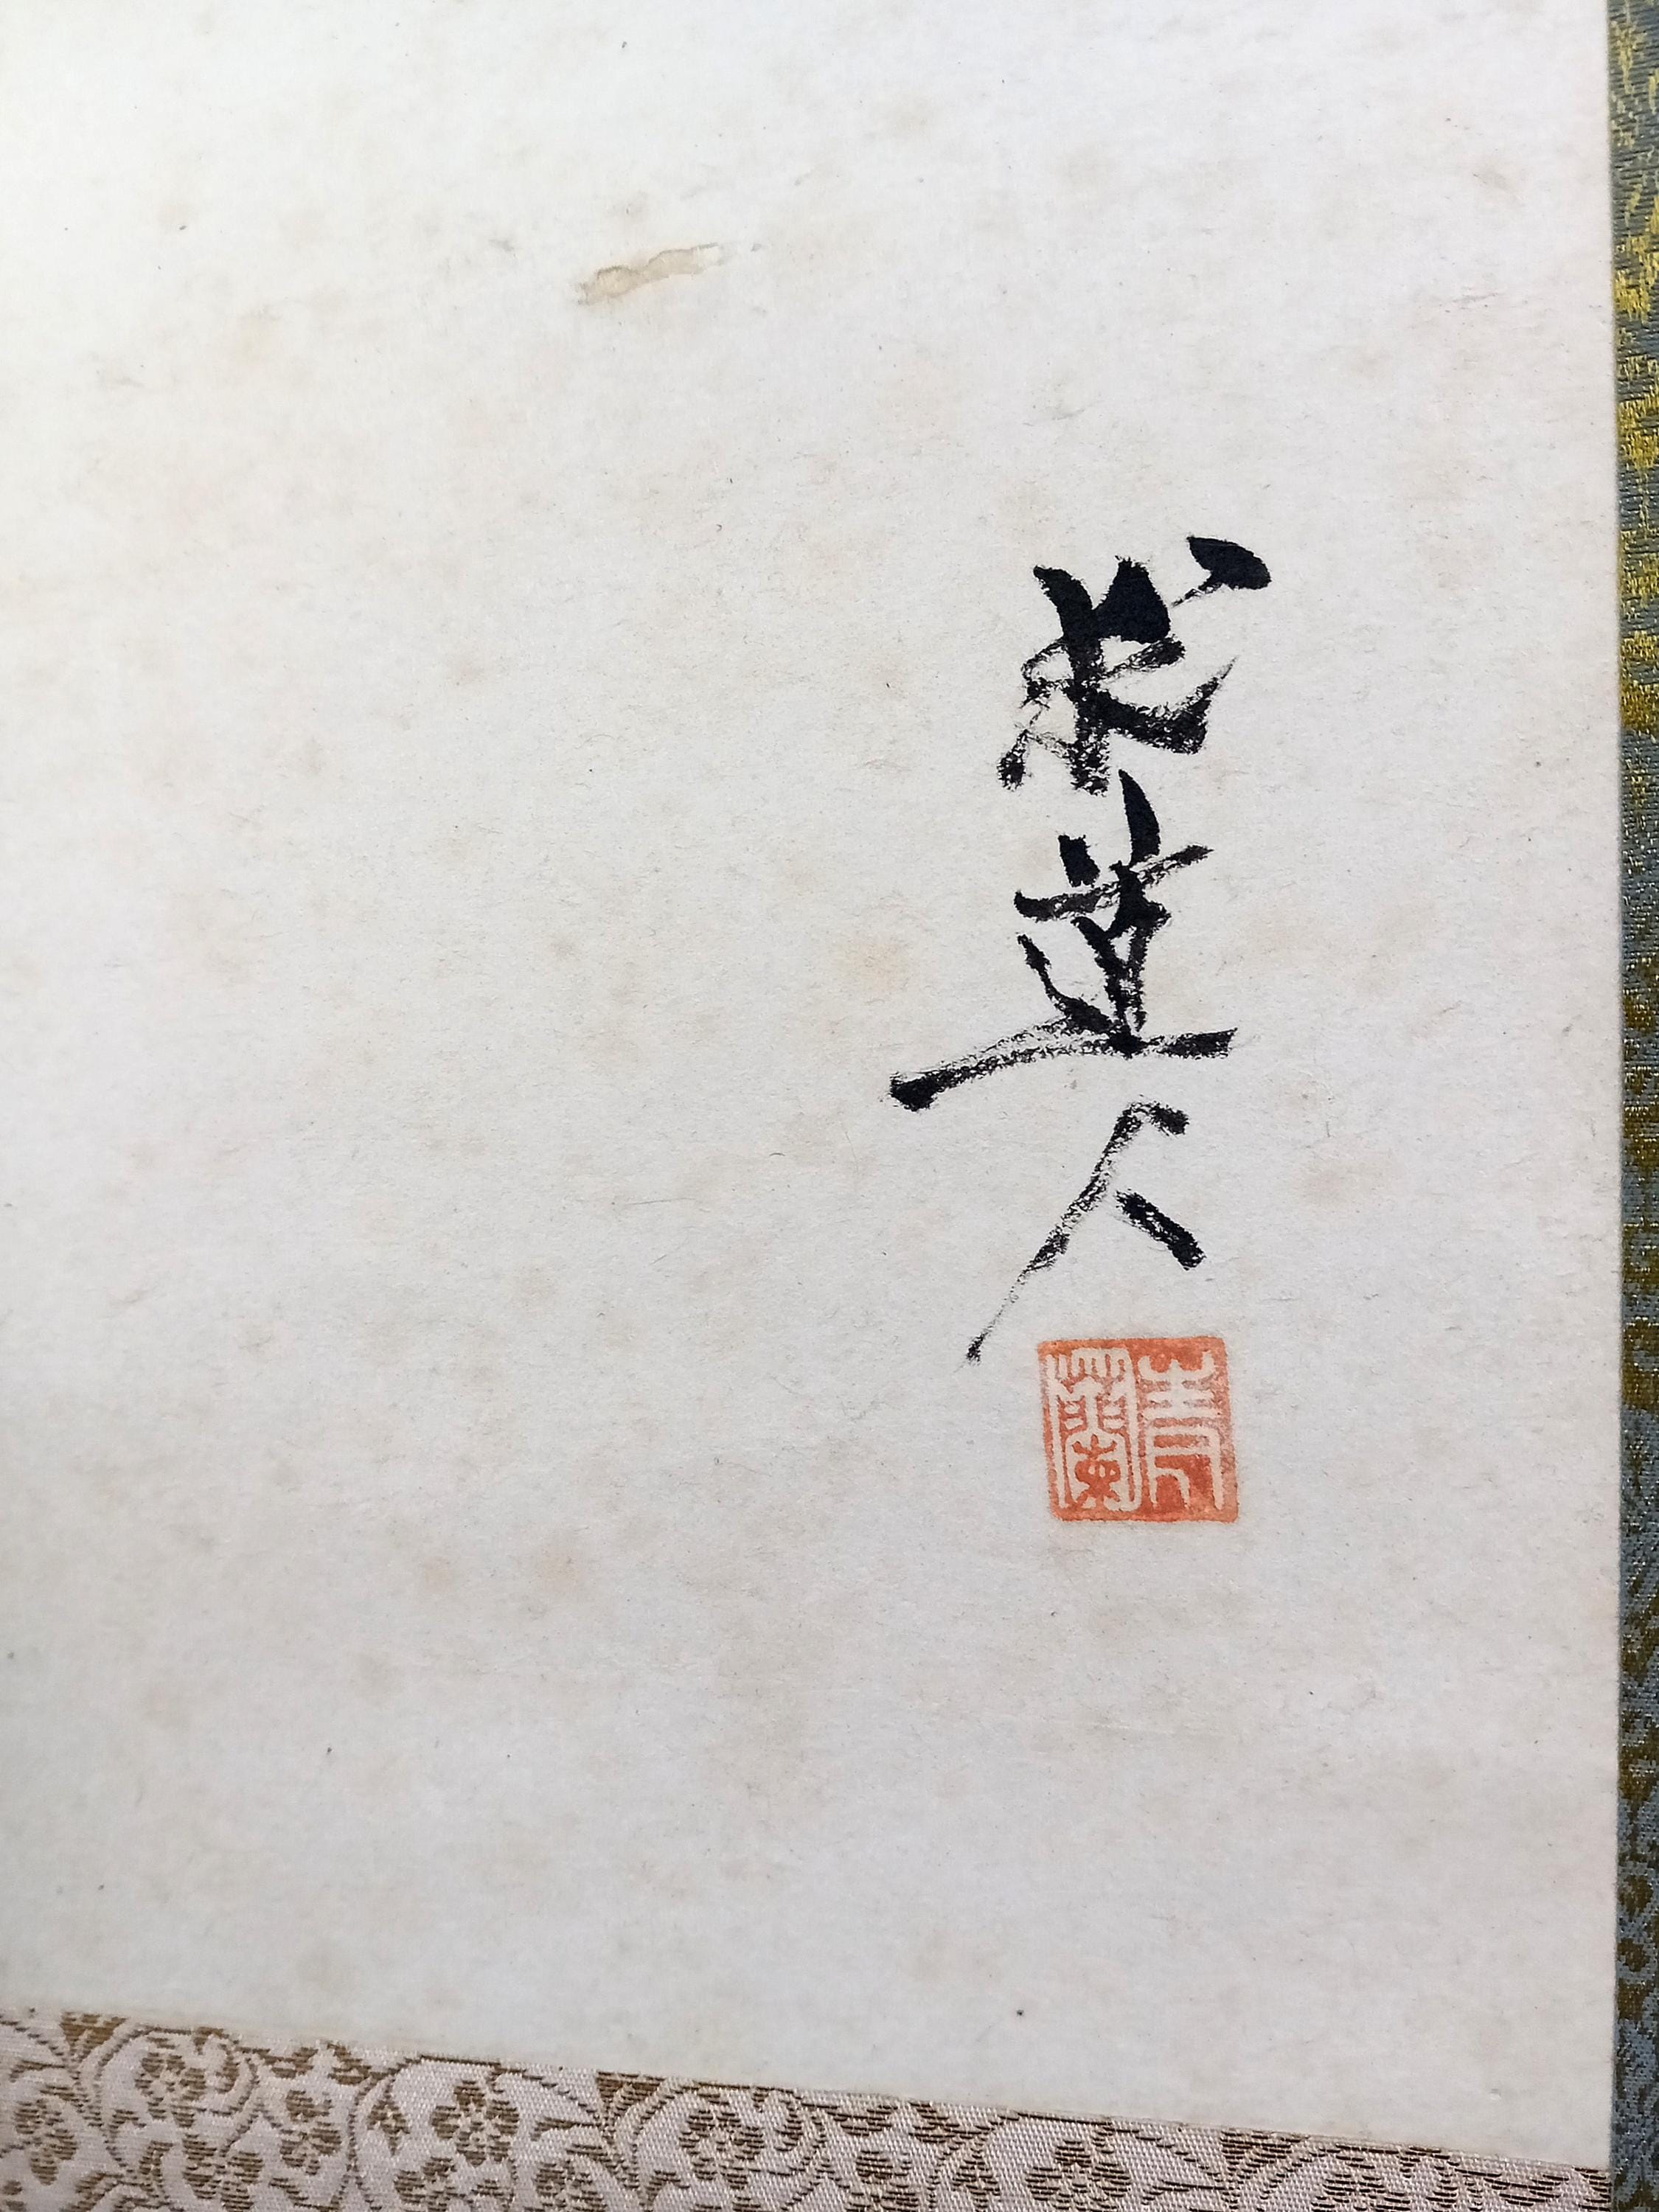 求道人
青蘭